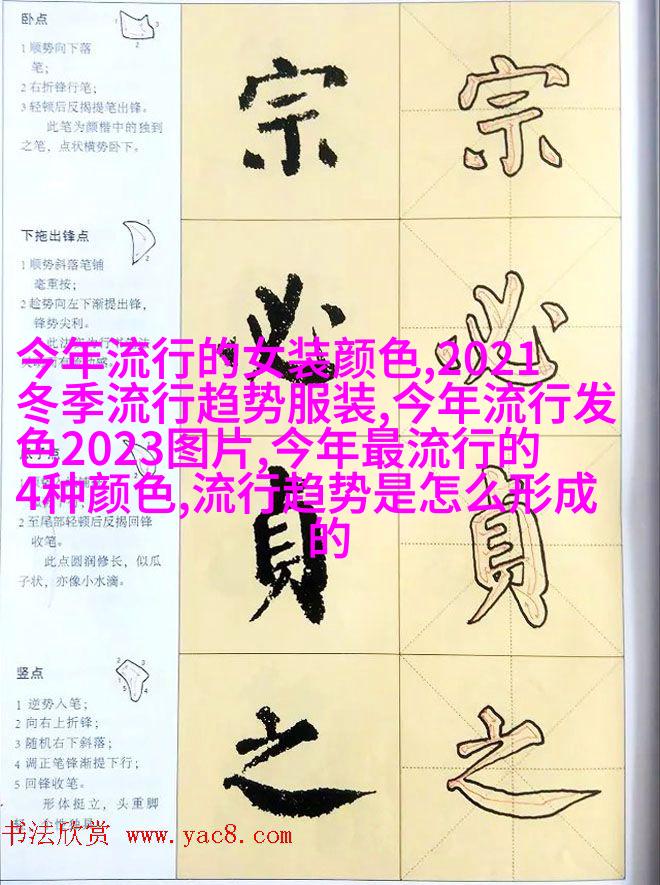 卧点
1 顺势向下落
笔;
2 右折锋行笔;
3 轻顿后反揭提笔出锋。
此笔为颜楷中的独到
之笔，点状横势卧下。
宗
宗
下拖出锋点
1 顺势斜落笔铺
毫重按;
2 趁势向左下渐提出锋,
锋势尖利。
必
必
今年流行的女装颜色,2021
冬季流行趋势服装,今年流行发
色2023图片,今年最流行的
4种颜色,流行趋势是怎么形成
的
2 至尾部轻顿后反揭回锋
收笔。
此点圆润修长，似瓜
子状，亦像小水滴。
貞
貞
竖点
1 逆势入笔;
2 向右上折锋;
3 随机右下斜落;
4 调正笔锋渐提下行;
5 回锋收笔。
形体挺立，头重脚
之
之
书法欣赏 www.yac8.com